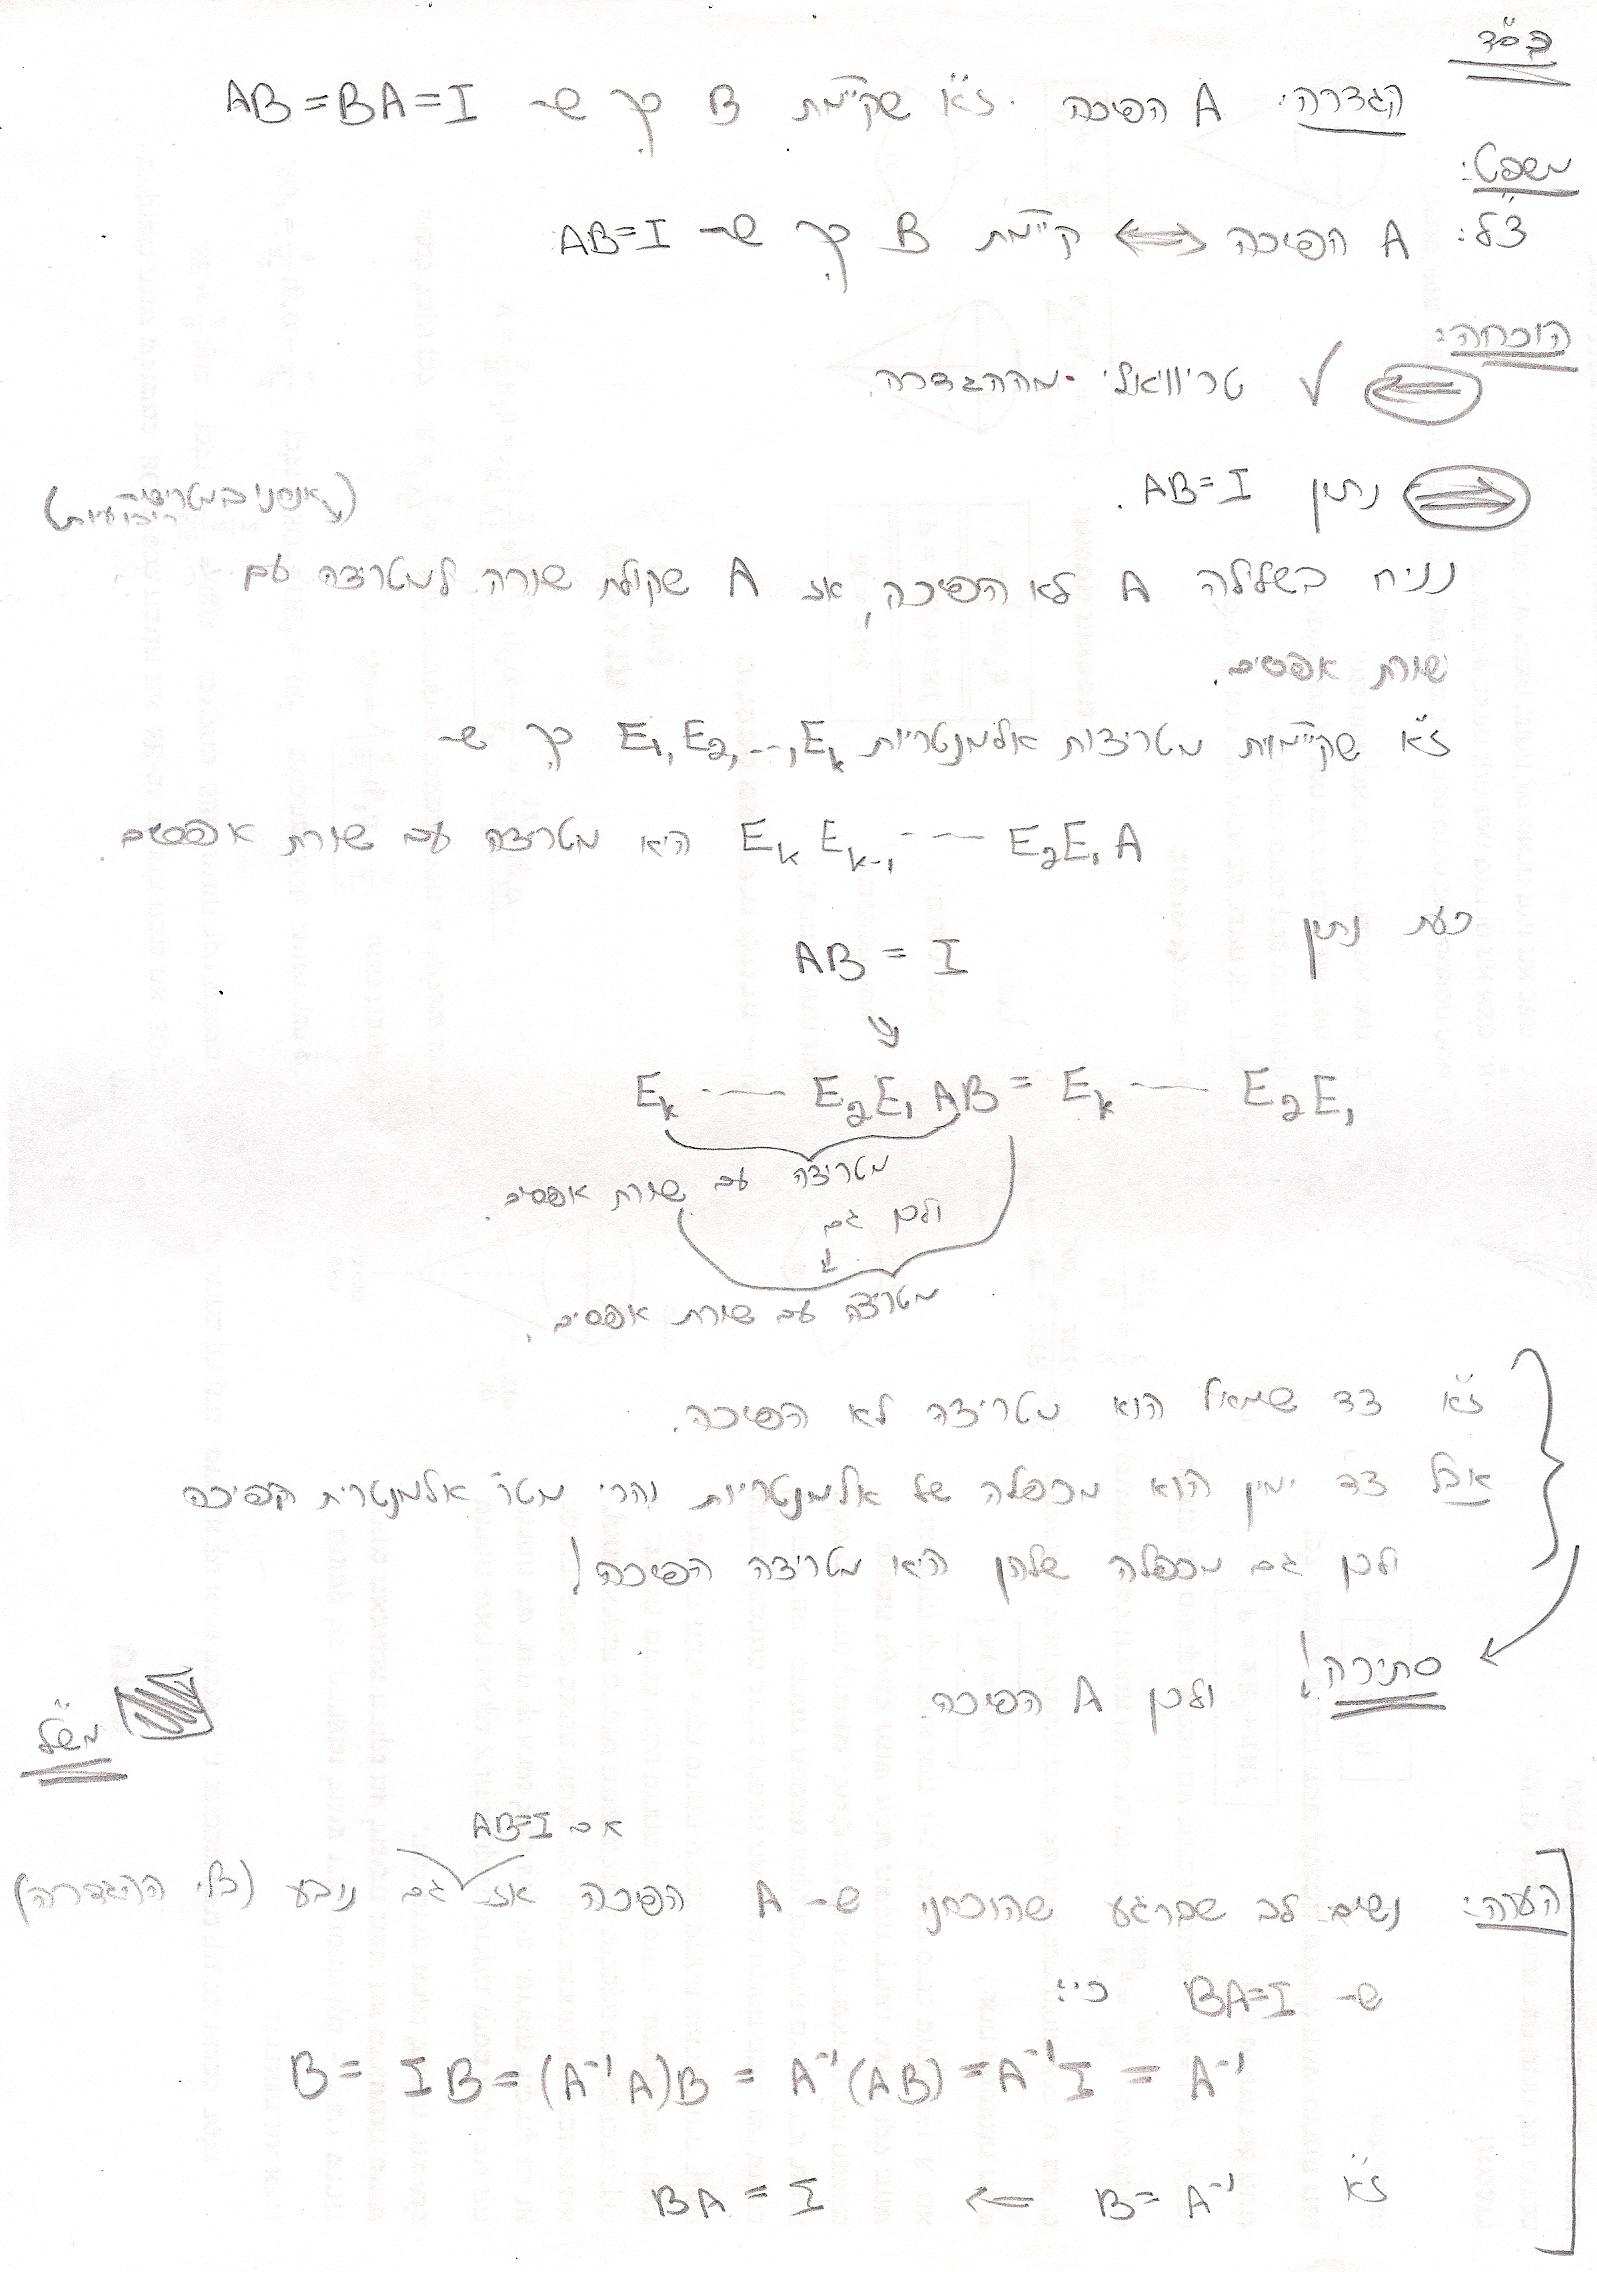 בס"ד
הגדרה: A הפיכה. ז"א שקיימת B כך ש- AB=BA=I
משפט:
צ"ל: A הפיכה ⟺ קיימת B כך ש- AB=I
הוכחה:
⟸ ✓ טריוויאלי מההגדרה.
⟹ נתון AB=I.
(אנחנו במטריצות ריבועיות)
נניח בשלילה A לא הפיכה, אז A שקולת שורה למטריצה עם
שורת אפסים.
ז"א שקיימות מטריצות אלמנטריות E₁, E₂, ..., Eₖ כך ש-
EₖEₖ₋₁ ---- E₂E₁A היא מטריצה עם שורת אפסים.
כעת נתון
AB = I
⇓
Eₖ ---- E₂E₁AB = Eₖ ---- E₂E₁
מטריצה עם שורת אפסים.
ולכן גם
↓
מטריצה עם שורת אפסים.
ז"א צד שמאל הוא מטריצה לא הפיכה.
אבל צד ימין הוא מכפלה של אלמנטריות והרי מטר' אלמנטרית הפיכה
ולכן גם מכפלה שלהן היא מטריצה הפיכה!
סתירה! ולכן A הפיכה.
מש"ל
אם AB=I
הערה: נשים לב שברגע שהוכחנו ש- A הפיכה אז גם נובע (בלי ההגדרה)
ש- BA=I כי:
B = IB = (A⁻¹A)B = A⁻¹(AB) = A⁻¹I = A⁻¹
ז"א B = A⁻¹ ← BA = I